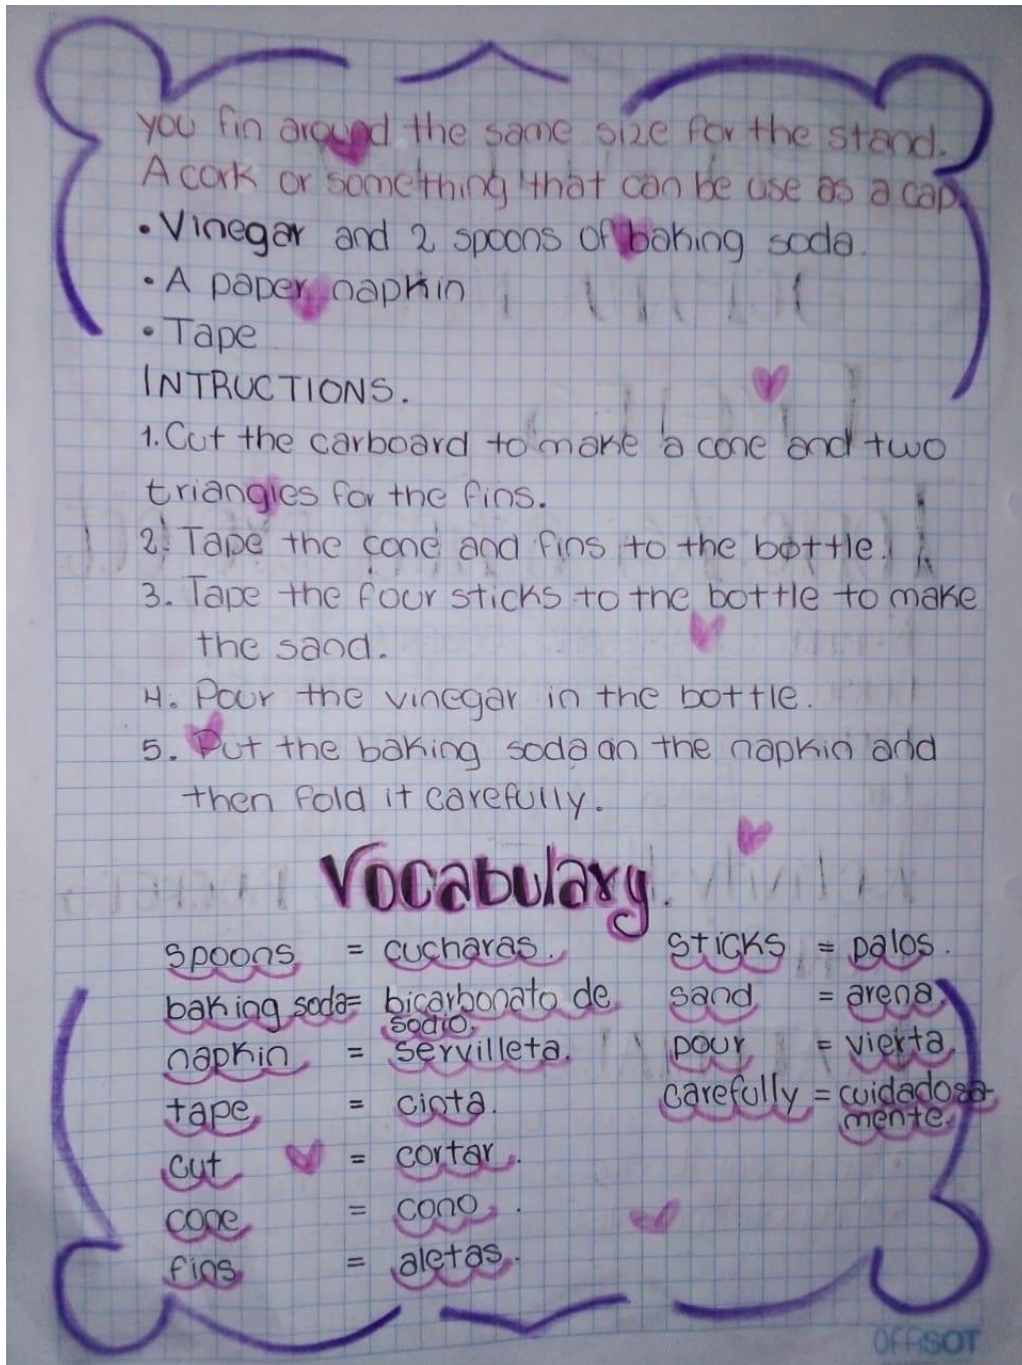 you fin around the same size for the stand.
A cork or something that can be use as a cap
• Vinegar and 2 spoons of baking soda.
• A paper napkin
• Tape
INTRUCTIONS.
1. Cut the carboard to make a cone and two
triangles for the fins.
2. Tape the cone and fins to the bottle.
3. Tape the four sticks to the bottle to make
the sand.
4. Pour the vinegar in the bottle.
5. Put the baking soda on the napkin and
then fold it carefully.
Vocabulary.
spoons = cucharas.
baking soda = bicarbonato de
sodio.
napkin = servilleta.
tape = cinta.
cut = cortar.
cone = cono.
fins = aletas.
sticks = palos.
sand = arena
pour = vierta.
carefully = cuidadosa
mente.
OFFISOT